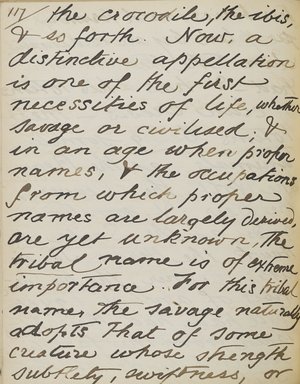 117/ the crocodile, the ibis,
& so forth. Now, a
distinctive appellation
is one of the first
necessities of life, whether
savage or civilised, &
in an age when proper
names, & the occupations
from which proper
names are largely derived,
are yet unknown, the
tribal name is of extreme
importance. For this tribal
name, the savage naturally
adopts that of some
creature whose strength
subtlety, swiftness, or